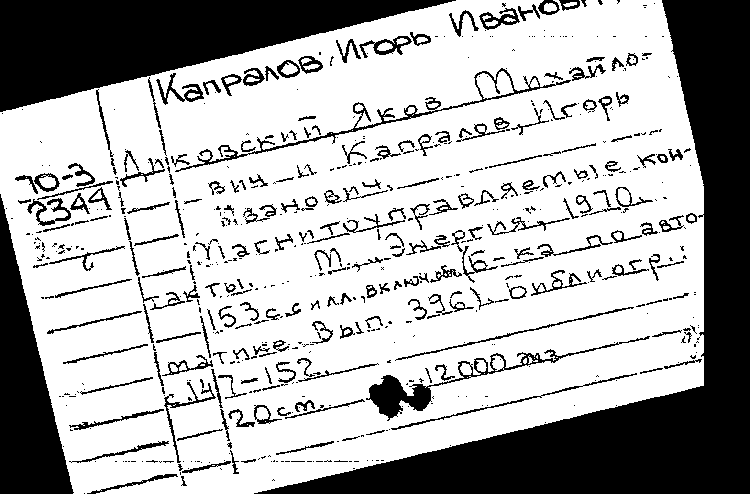 Капралов, Игорь Иванович,
Диковский, Яков Михайло-
вич и Капралов, Игорь
Иванович.
70-3
2344
Магнитоуправляемые кон-
такты. М., „Энергия“, 1970.
153 с. с илл., включ. обл. (Б-ка по авто-
матике. Вып. 396). Библиогр.:
с. 147-152.
20 см. 12000 экз